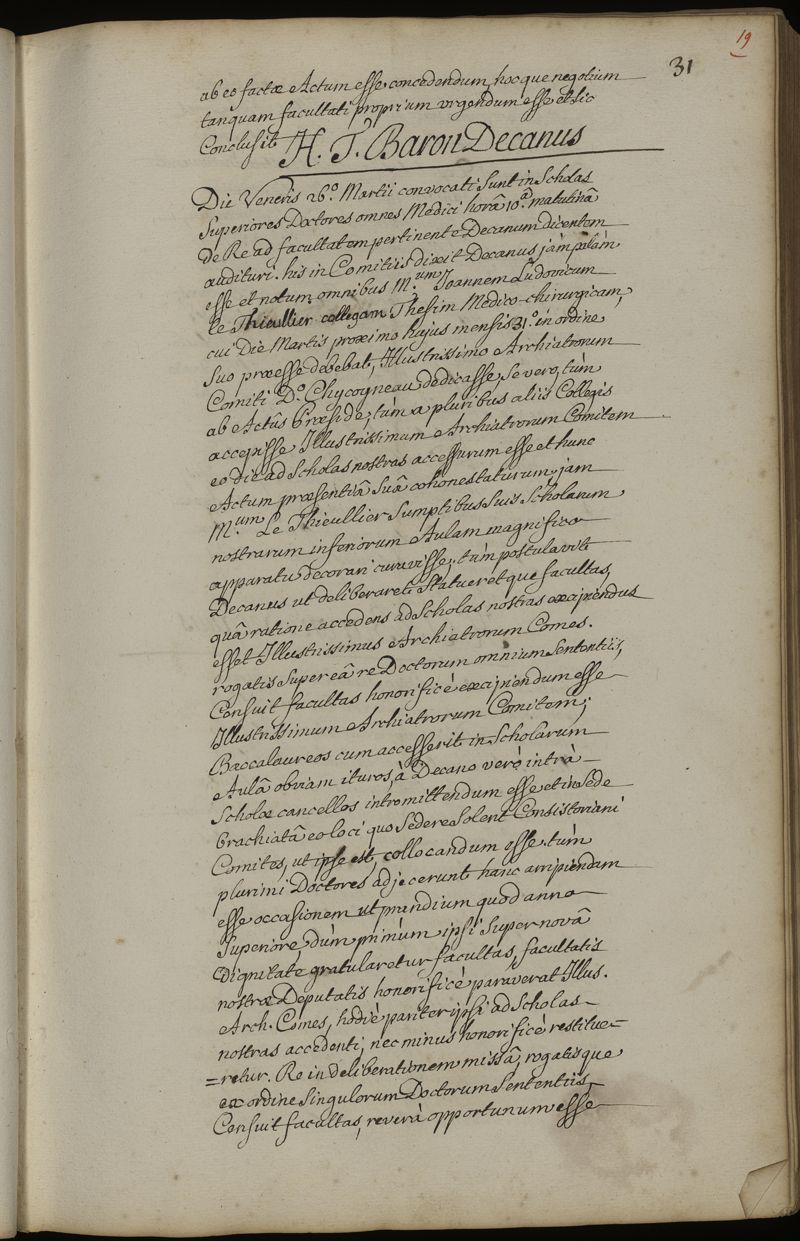 19
31
ab eo factæ Actum esse concedendum, hocque negotium
tanquam facultati proprium urgendum esse et sic
Conclusit H. T. Baron Decanus
Die Veneris 26.º Martii convocati Sunt in Scholas
Superiores Doctores omnes Medici horâ 10.ª matutinâ
de Re ad facultatem pertinente Decanum dicentem
audituri. his in Comitiis dixit Decanus jàm palàm
esse et notum omnibus M.um Joannem Ludovicum
le Thieullier collegam Thesim Medico-chirurgicam,
cui Die Martis proximo hujus mensis 31.º in ordine
Suo præesse debebat, Illustrissimo Archiatrorum
Comiti D.º Chycogneau dedicasse, Se vero, tùm
ab Actûs Præside, tùm a pluribus aliis Collegis
accepisse Illustrissimum Archiatrorum Comitem
eo die ad Scholas nostras accessurum esse et hunc
Actum præsentiâ Suâ cohonestaturum, jam
M.um Le Thieullier Sumptibus Suis Scholarum
nostrarum inferiorum Aulam magnifico
apparatu decorari curavisse, tùm postulavit
Decanus ut deliberaret Statueretque facultas,
quâ ratione accedens ad Scholas nostras excipiendus
esset Illustrissimus Archiatrorum Comes.
rogatis Super eâ re Doctorum omnium Sententiis,
Censuit facultas honorificé excipiendum esse
Illustrissimum Archiatrorum Comitem;
Baccalaureos cum accesserit in Scholarum
Aulâ obviam ituros, à Decano verò intrà
Scholæ cancellos intromittendum esse et in Sede
brachiatâ eo loci quo Sedere Solent Consistoriani
Comites, ut ipse est, collocandum esse. tùm
plurimi Doctores adjecerunt hanc arripiendam
esse occasionem ut prandium quod anno
Superiore, dùm primùm ipsi Super novâ
Dignitate gratularetur facultas, facultatis
nostræ Deputatis honorificé paraverat Illus.
Arch. Comes, hodiè pariter ipsi ad Scholas
nostras accedenti, nec minus honorificé restitue=
=retur. Re in deliberationem missâ, rogatisque
ex ordine Singulorum Doctorum Sententiis,
Censuit facultas, reverà opportunum esse